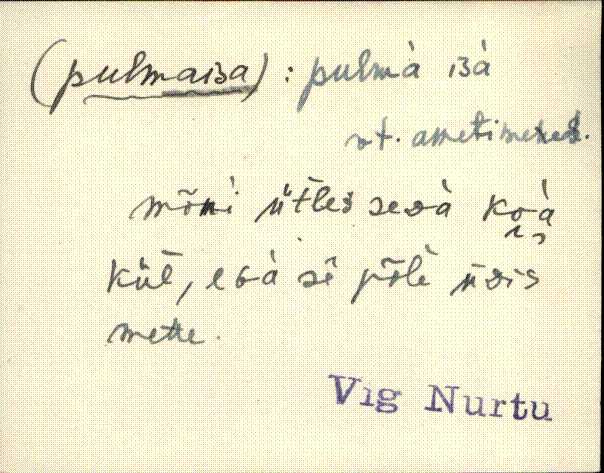 (pulmaisa) : pulmà isà
vt. ametimehed.
mõni ütles sedà koà
kül, egà sē põlè üdis
mette.
Vig Nurtu